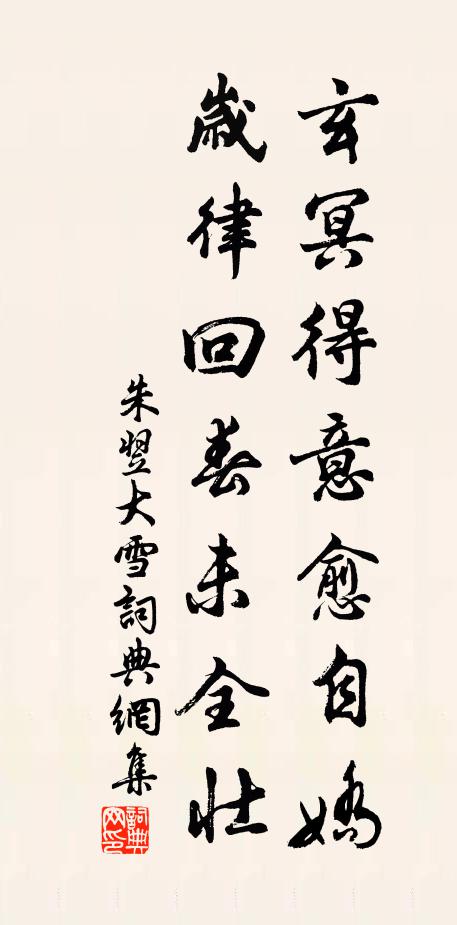 玄冥得意愈自嬌
歲律回春未全壯
朱翌大雪詞典網集
詞典网印